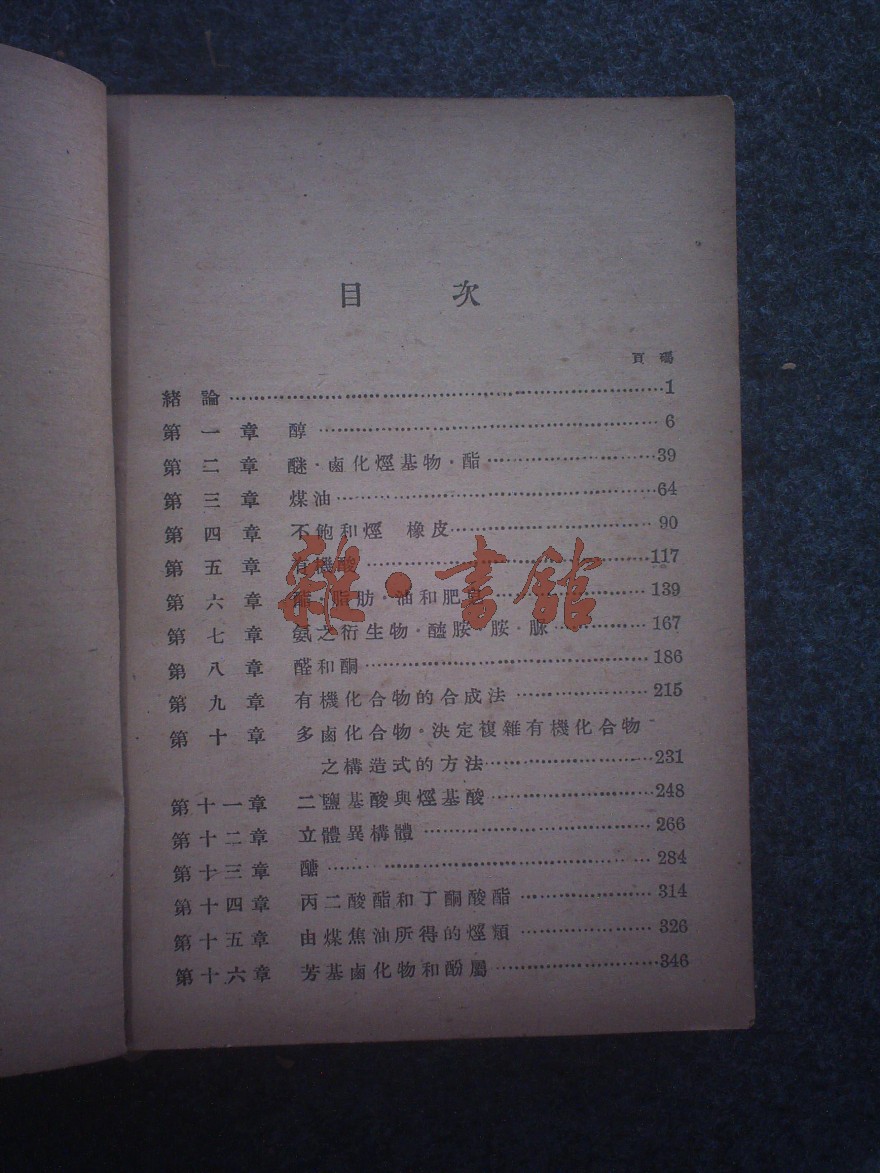 目 次
頁 碼
緒 論 1
第 一 章 醇 6
第 二 章 醚·鹵化烴基物·酯 39
第 三 章 煤油 64
第 四 章 不飽和烴 橡皮 90
第 五 章 有機酸 117
第 六 章 ·脂肪·油和肥皂 139
第 七 章 氨之衍生物·醯胺·胺·脲 167
第 八 章 醛和酮 186
第 九 章 有機化合物的合成法 215
第 十 章 多鹵化合物·決定複雜有機化合物
之構造式的方法 231
第十一章 二鹽基酸與烴基酸 248
第十二章 立體異構體 266
第十三章 醣 284
第十四章 丙二酸酯和丁酮酸酯 314
第十五章 由煤焦油所得的烴類 326
第十六章 芳基鹵化物和酚屬 346
雜·書館